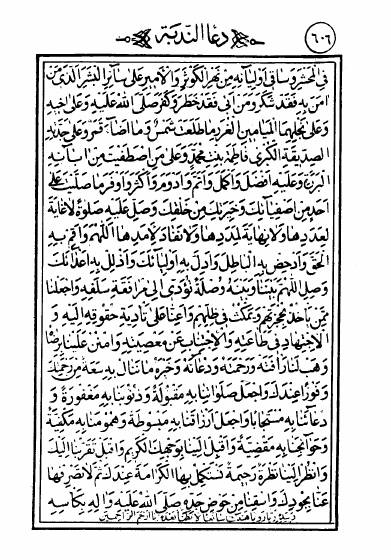 ٦٠٦
دعاء الندبة
فِي الْمَحْشَرِ وَسَاقِي أَوْلِيَائِهِ مِنْ نَهَرِ الْكَوْثَرِ وَالْأَمِيرِ عَلَى سَائِرِ الْبَشَرِ الَّذِي مَنْ
امَنَ بِهِ فَقَدْ شَكَرَ وَمَنْ أَبَى فَقَدْ خَطَرَ وَكَفَرَ صَلَّى اللهُ عَلَيْهِ وَعَلَى أَخِيهِ
وَعَلَى نَجْلِهِمَا الْمَيَامِينِ الْغُرَرِ مَا طَلَعَتْ شَمْسٌ وَمَا أَضَاءَ قَمَرٌ وَعَلَى جَدَّتِهِ
الصِّدِّيقَةِ الْكُبْرَى فَاطِمَةَ بِنْتِ مُحَمَّدٍ وَعَلَى مَنِ اصْطَفَيْتَ مِنْ ابَائِهِ
الْبَرَرَةِ وَعَلَيْهِ أَفْضَلَ وَأَكْمَلَ وَأَتَمَّ وَأَدْوَمَ وَأَكْثَرَ وَأَوْفَرَ مَا صَلَّيْتَ عَلَى
أَحَدٍ مِنْ أَصْفِيَائِكَ وَخِيَرَتِكَ مِنْ خَلْقِكَ وَصَلِّ عَلَيْهِ صَلٰوةً لَا غَايَةَ
لِعَدَدِهَا وَلَا نِهَايَةَ لِمَدَدِهَا وَلَا نَفَادَ لِأَمَدِهَا اَللّٰهُمَّ وَأَقِمْ بِهِ
الْحَقَّ وَأَدْحِضْ بِهِ الْبَاطِلَ وَأَدِلْ بِهِ أَوْلِيَائَكَ وَأَذْلِلْ بِهِ أَعْدَائَكَ
وَصِلِ اللّٰهُمَّ بَيْنَنَا وَبَيْنَهُ وُصْلَةً تُؤَدِّي إِلَى مُرَافَقَةِ سَلَفِهِ وَاجْعَلْنَا
مِمَّنْ يَأْخُذُ بِحُجْزَتِهِمْ وَيَمْكُثُ فِي ظِلِّهِمْ وَأَعِنَّا عَلَى تَأْدِيَةِ حُقُوقِهِ إِلَيْهِ وَ
الْاِجْتِهَادِ فِي طَاعَتِهِ وَالْاِجْتِنَابِ عَنْ مَعْصِيَتِهِ وَامْنُنْ عَلَيْنَا بِرِضَاهُ
وَهَبْ لَنَا رَأْفَتَهُ وَرَحْمَتَهُ وَدُعَائَهُ وَخَيْرَهُ مَا نَنَالُ بِهِ سَعَةً مِنْ رَحْمَتِكَ
وَفَوْزًا عِنْدَكَ وَاجْعَلْ صَلَوَاتِنَا بِهِ مَقْبُولَةً وَذُنُوبَنَا بِهِ مَغْفُورَةً وَ
دُعَائَنَا بِهِ مُسْتَجَابًا وَاجْعَلْ أَرْزَاقَنَا بِهِ مَبْسُوطَةً وَهُمُومَنَا بِهِ مَكْفِيَّةً
وَحَوَائِجَنَا بِهِ مَقْضِيَّةً وَأَقْبِلْ إِلَيْنَا بِوَجْهِكَ الْكَرِيمِ وَاقْبَلْ تَقَرُّبَنَا إِلَيْكَ
وَانْظُرْ إِلَيْنَا نَظْرَةً رَحِيمَةً نَسْتَكْمِلُ بِهَا الْكَرَامَةَ عِنْدَكَ ثُمَّ لَا تَصْرِفْهَا
عَنَّا بِجُودِكَ وَاسْقِنَا مِنْ حَوْضِ جَدِّهِ صَلَّى اللهُ عَلَيْهِ وَالِهِ بِكَأْسِهِ
وَبِيَدِهِ رَيًّا رَوِيًّا هَنِيئًا سَائِغًا لَا ظَمَأَ بَعْدَهُ يَا أَرْحَمَ الرَّاحِمِينَ